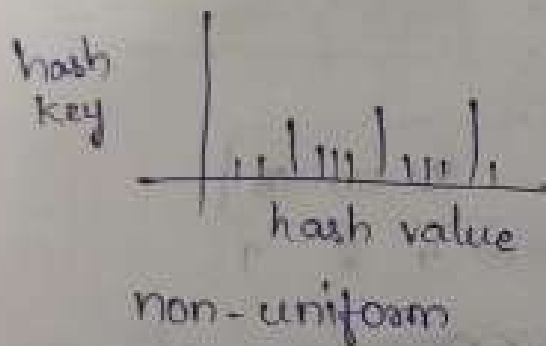 hash
key
hash value
non-uniform